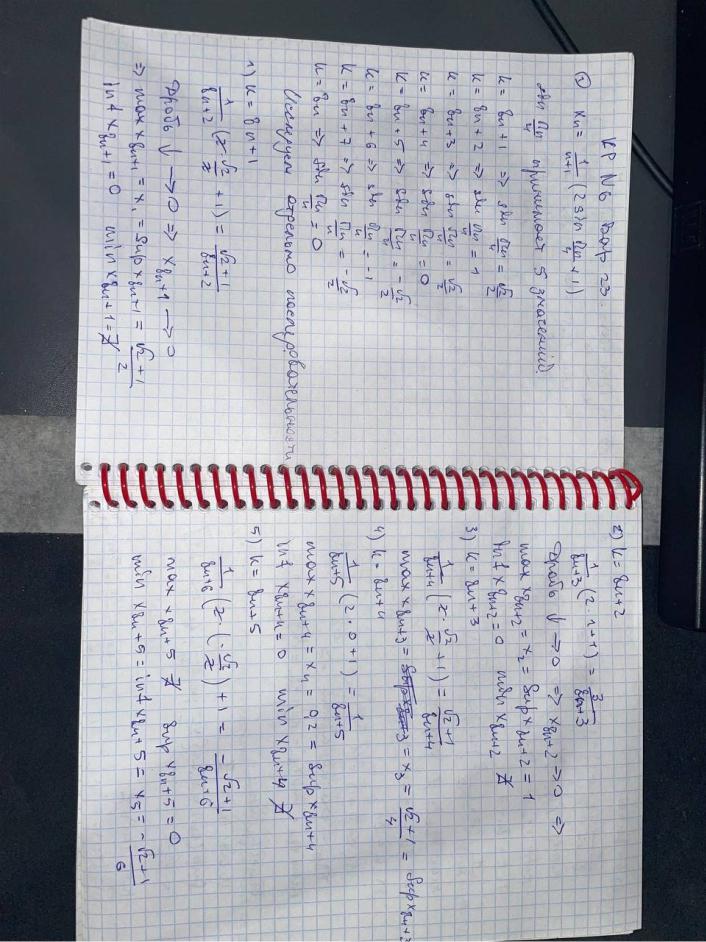 КР №6 Вар 23.
① xn = 1/(n+1) (2 sin πn/4 + 1)
sin πn/4 принимает 5 значений
k = 8n+1 ⇒ sin πn/4 = √2/2
k = 8n+2 ⇒ sin πn/4 = 1
k = 8n+3 ⇒ sin πn/4 = √2/2
k = 8n+4 ⇒ sin πn/4 = 0
k = 8n+5 ⇒ sin πn/4 = -√2/2
k = 8n+6 ⇒ sin πn/4 = -1
k = 8n+7 ⇒ sin πn/4 = -√2/2
k = 8n ⇒ sin πn/4 = 0
Исследуем отдельно последовательности
1) k = 8n+1
1/(8n+2) (2·√2/2 + 1) = (√2+1)/(8n+2)
Дробь ↓ → 0 ⇒ x8n+1 → 0
⇒ max x8n+1 = x1 = sup x8n+1 = (√2+1)/2
inf x8n+1 = 0 min x8n+1 = ∄
2) k = 8n+2
1/(8n+3) (2·1+1) = 3/(8n+3)
Дробь ↓ → 0 ⇒ x8n+2 → 0 ⇒
max x8n+2 = x2 = sup x8n+2 = 1
inf x8n+2 = 0 min x8n+2 ∄
3) k = 8n+3
1/(8n+4) (2·√2/2 + 1) = (√2+1)/(8n+4)
max x8n+3 = x3 = (√2+1)/4 = sup x8n+3
4) k = 8n+4
1/(8n+5) (2·0+1) = 1/(8n+5)
max x8n+4 = x4 = 0,2 = sup x8n+4
inf x8n+4 = 0 min x8n+4 ∄
5) k = 8n+5
1/(8n+6) (2·(-√2/2) + 1 = (-√2+1)/(8n+6)
max x8n+5 ∄ sup x8n+5 = 0
min x8n+5 = inf x8n+5 = x5 = (-√2+1)/6